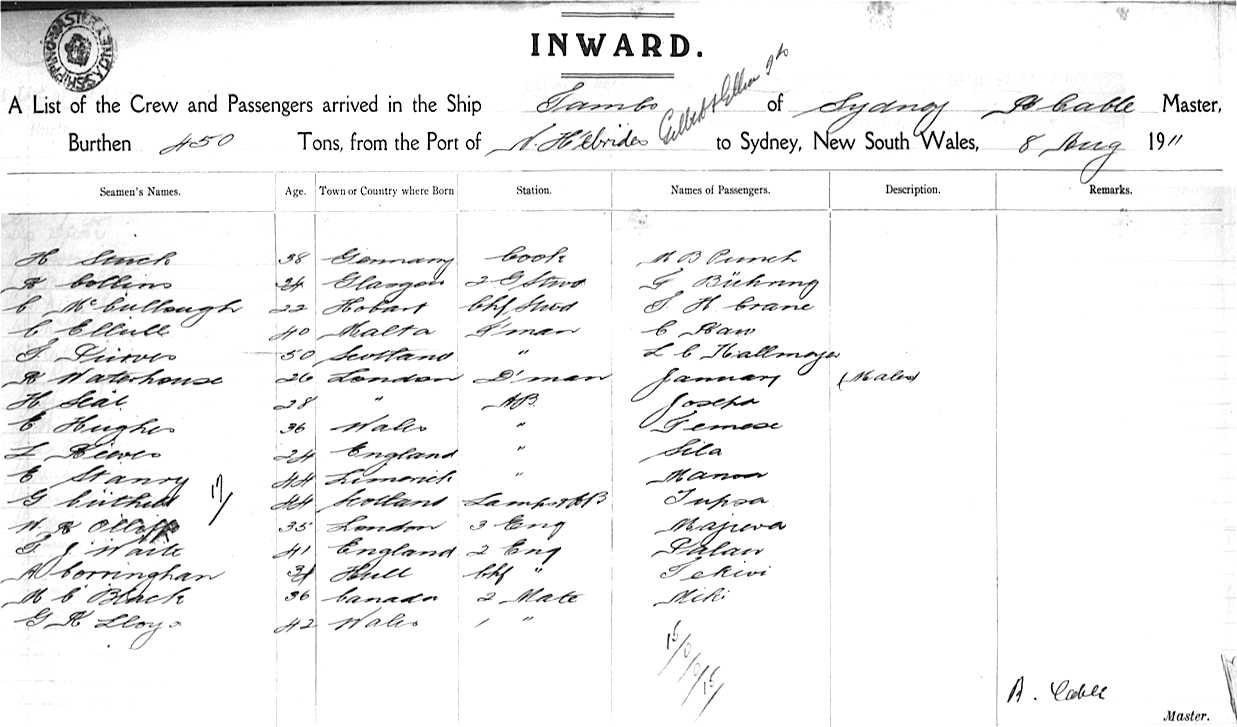 SHIPPING MASTER SYDNEY
INWARD.
A List of the Crew and Passengers arrived in the Ship Tambo of Sydney R Cable Master,
Gilbert & Ellice Is
Burthen 450 Tons, from the Port of N. Hebrides to Sydney, New South Wales, 8 Aug 1911
Seamen's Names. Age. Town or Country where Born Station. Names of Passengers. Description. Remarks.
H 38 Germany Cook B Punch
R Collins 24 Glasgow 2 Stwd Bühring
C McCullough 22 Hobart Chf Stwd H Crane
C Ellull 40 Malta F'man C
50 Scotland " L C
R Waterhouse 26 London D'man January (Males)
H Seal 28 " AB Joseph
E Hughes 36 Wales " Temese
L Reeves 24 England " Sila
E 44 Limerick " Manoa
G 44 Scotland Lamps & AB Tupsa
W. R Olliff 35 London 3 Eng
J Waite 41 England 2 Eng Palau
A Corringhan Hull Chf " Tekivi
M C Black 36 Canada 2 Mate Miki
G R Lloyd 42 Wales "
17/
15/0/0/15
R. Cable
Master.